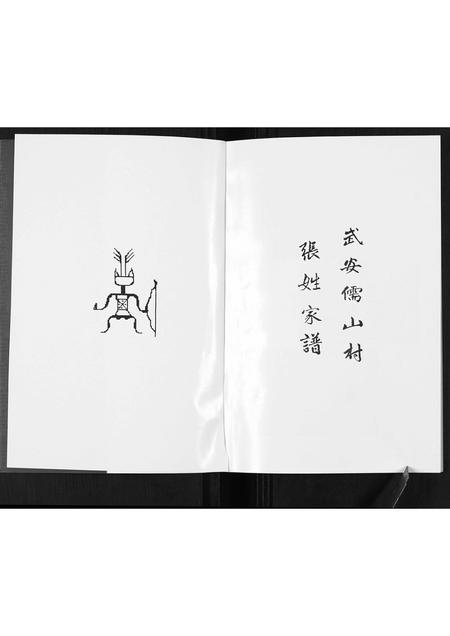 武安儒山村
張姓家譜